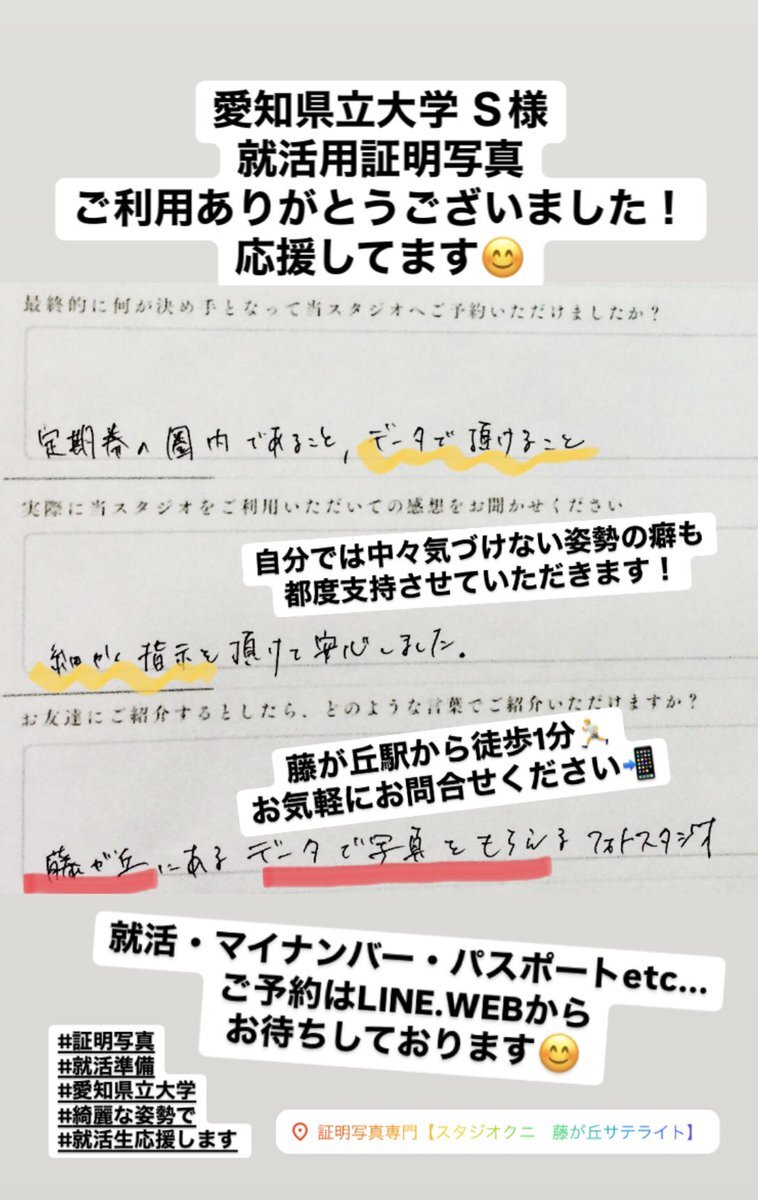 愛知県立大学 S様
就活用証明写真
ご利用ありがとうございました！
応援してます😊
最終的に何が決め手となって当スタジオへご予約いただけましたか？
定期券の圏内であること,データで頂けること
実際に当スタジオをご利用いただいての感想をお聞かせください
自分では中々気づけない姿勢の癖も
都度支持させていただきます！
細かく指示を頂けて安心しました。
お友達にご紹介するとしたら、どのような言葉でご紹介いただけますか？
藤が丘駅から徒歩1分🏃
お気軽にお問合せください📲
藤が丘にあるデータで写真をもらえるフォトスタジオ
就活・マイナンバー・パスポートetc...
ご予約はLINE.WEBから
お待ちしております😊
#証明写真
#就活準備
#愛知県立大学
#綺麗な姿勢で
#就活生応援します
証明写真専門【スタジオクニ　藤が丘サテライト】